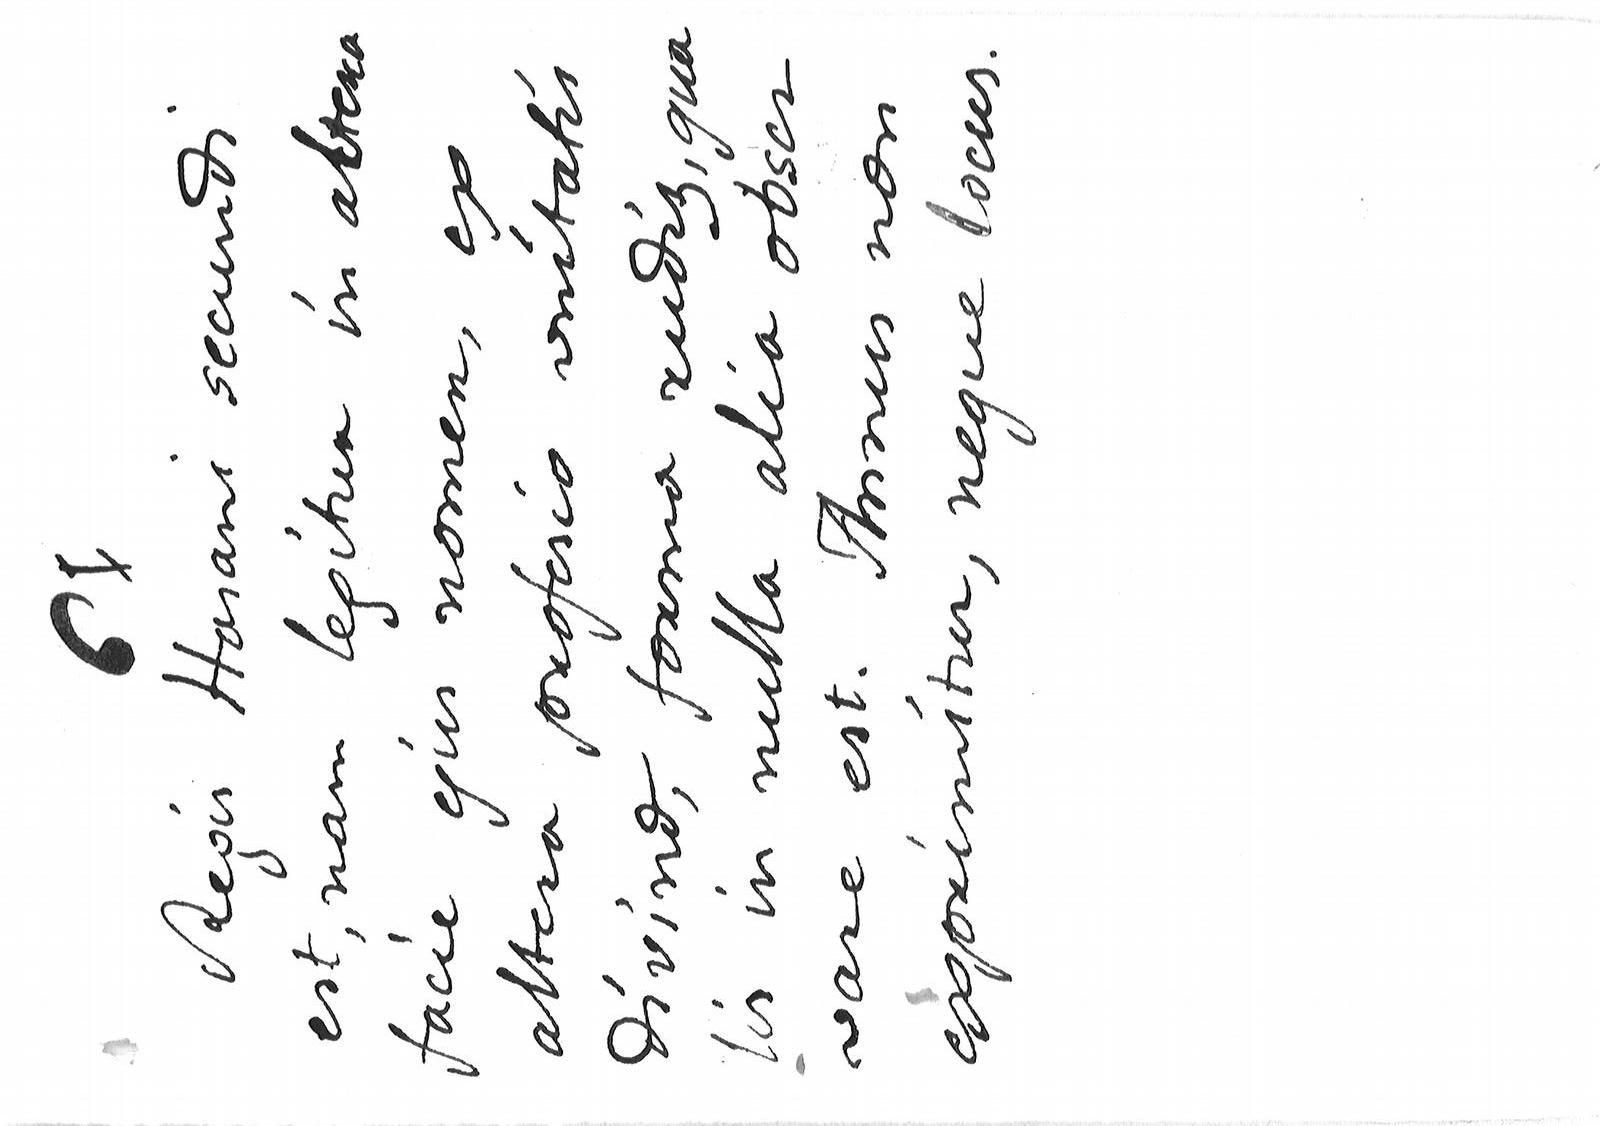 61
Regis Hasani secundi
est, nam legitur in altera
facie ejus nomen, ex
altera profesio vnitatis
divinæ, forma rudis, qua
lis in nulla alia obser
vare est. Annus non
exprimitur, neque locus.